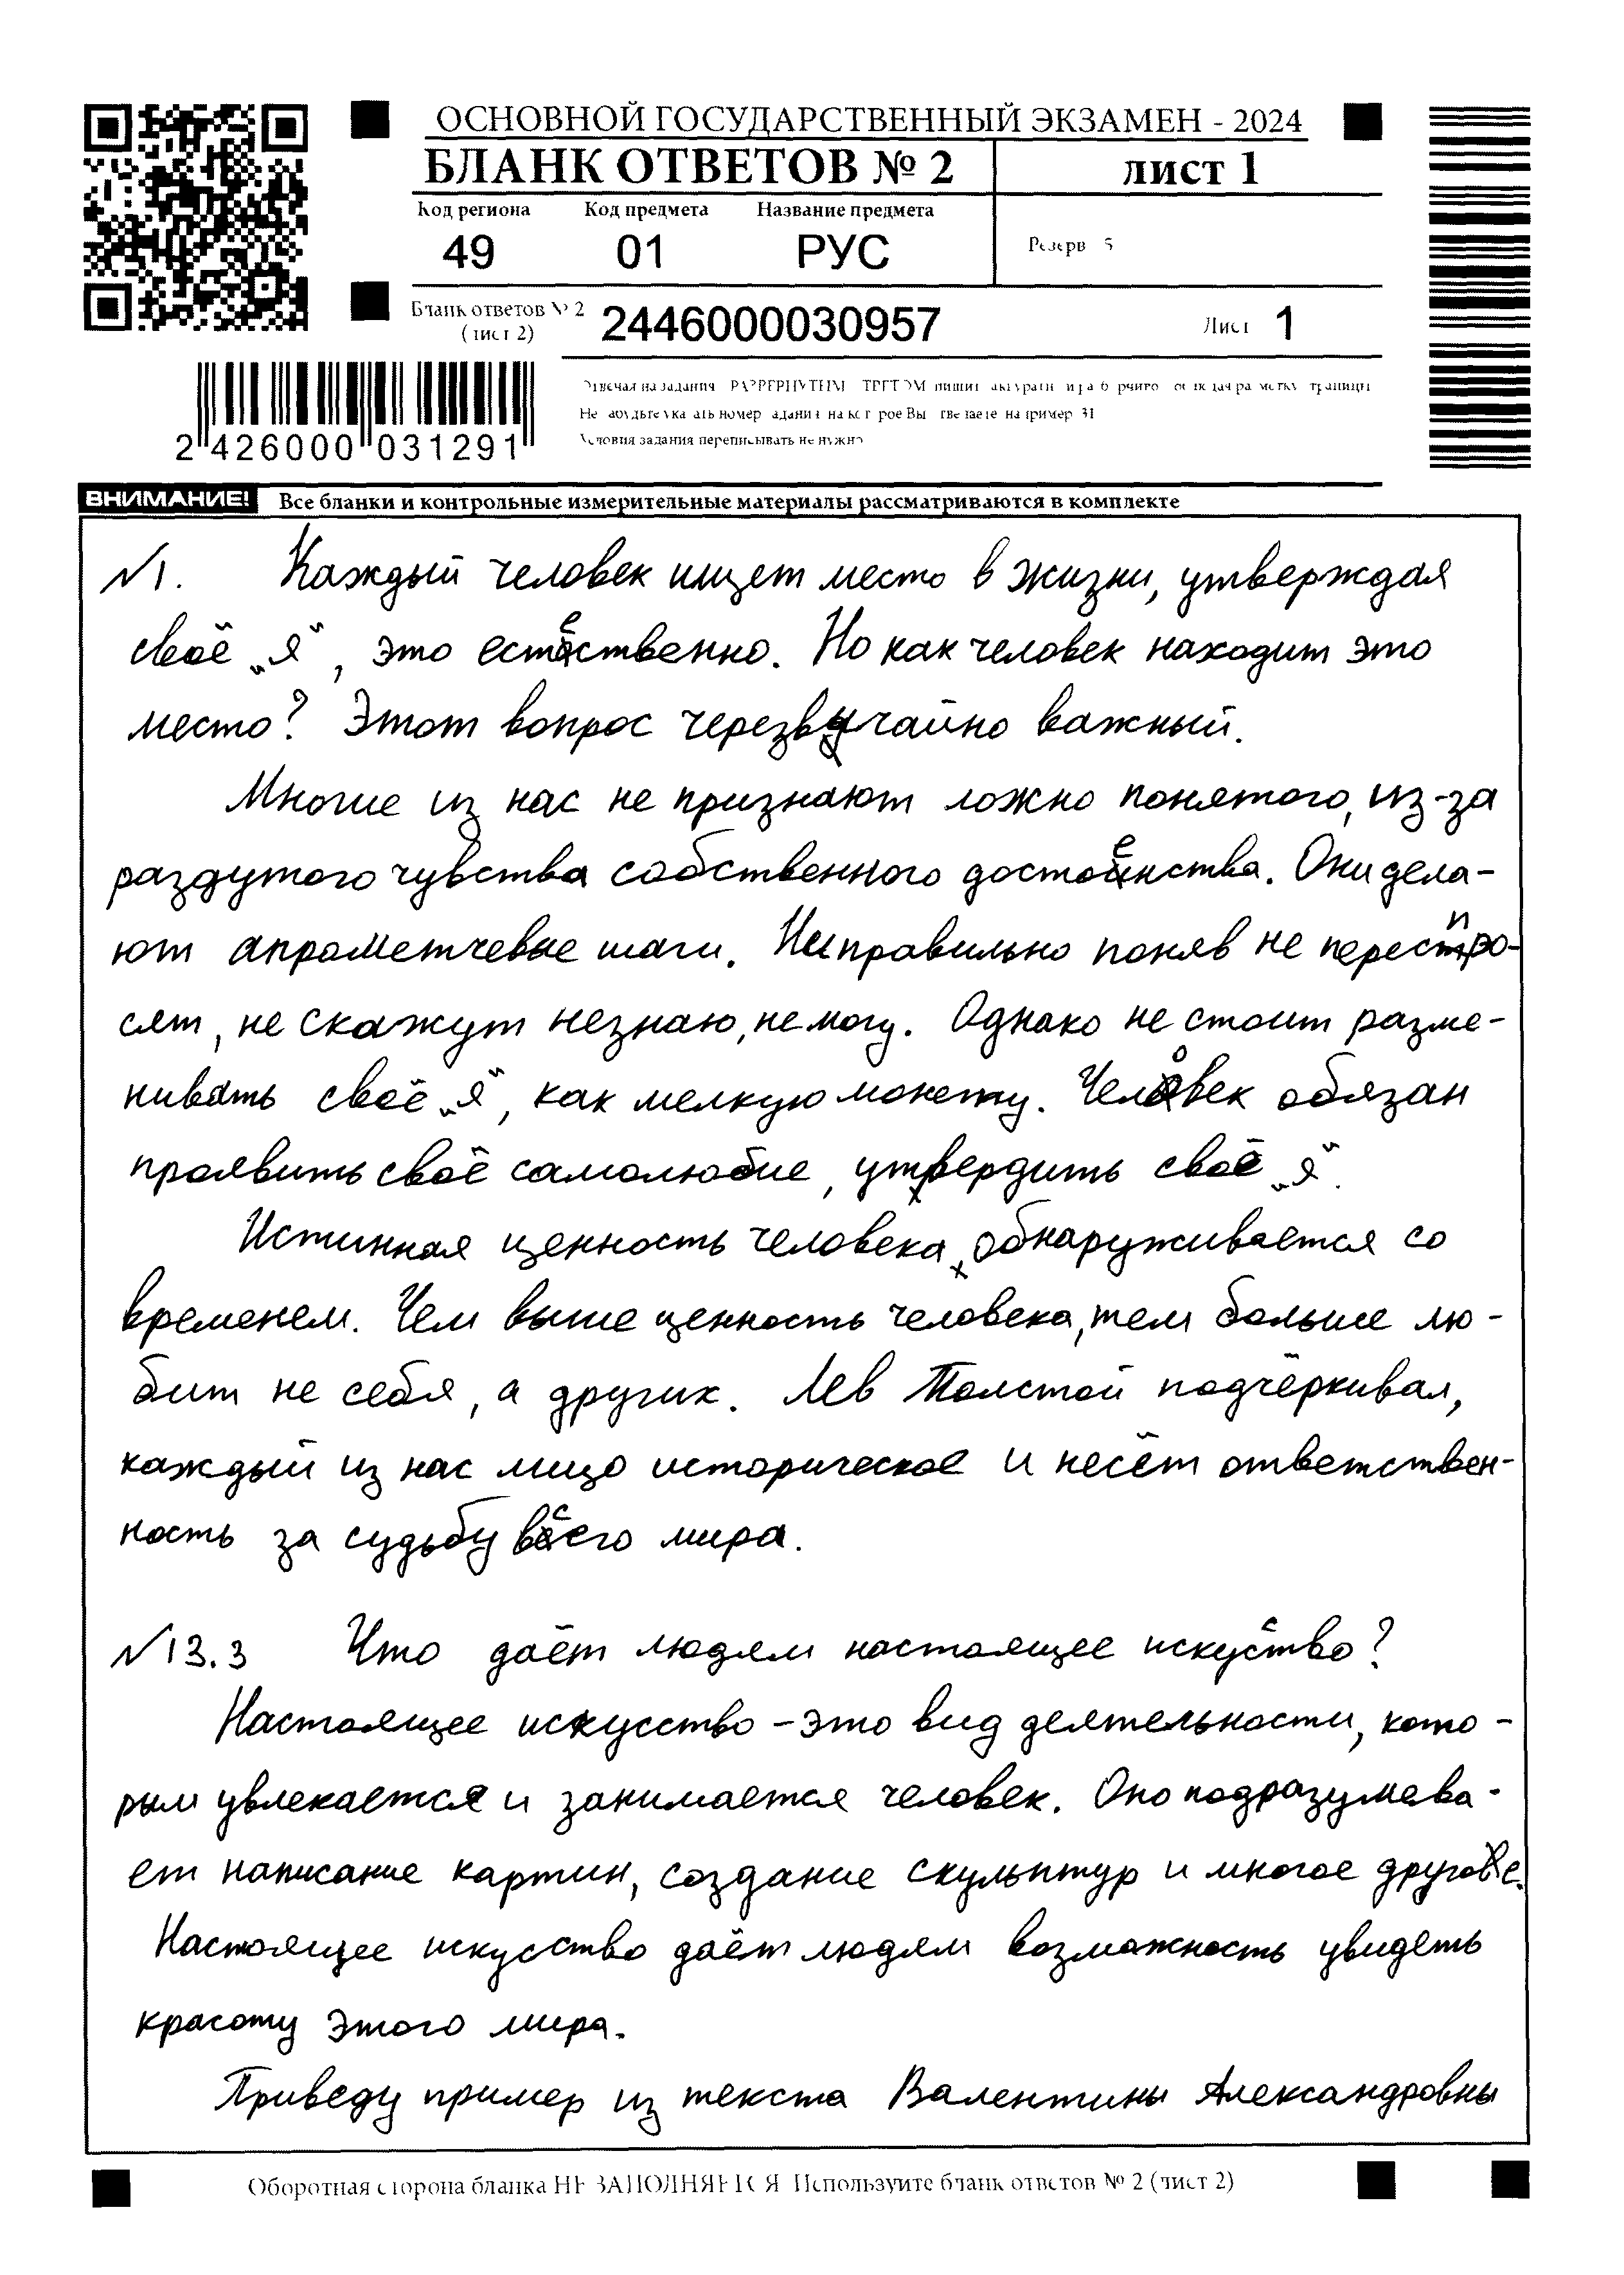 ОСНОВНОЙ ГОСУДАРСТВЕННЫЙ ЭКЗАМЕН - 2024
БЛАНК ОТВЕТОВ № 2
ЛИСТ 1
Код региона Код предмета Название предмета
49 01 РУС
Резерв - 5
Бланк ответов № 2
(лист 2)
2446000030957
Лист 1
2 426000 031291
Отвечая на задания с РАЗВЕРНУТЫМ ОТВЕТОМ пишите аккуратно и разборчиво, соблюдая разметку страницы
Не забудьте указать номер задания на которое Вы отвечаете, например 31
Условия задания переписывать не нужно
ВНИМАНИЕ! Все бланки и контрольные измерительные материалы рассматриваются в комплекте
№1. Каждый человек ищет место в жизни, утверждая
своё „я“, это естественно. Но как человек находит это
место? Этот вопрос черезвычайно важный.
Многие из нас не признают ложно понятого, из-за
раздутого чувства собственного достоенства. Они дела-
ют апрометчевые шаги. Неправильно поняв не переспро-
сят, не скажут незнаю, не могу. Однако не стоит разме-
нивать своё „я“, как мелкую монету. Человек обязан
проявить своё самолюбие, утвердить своё „я“.
Истинная ценность человека обнаруживается со
временем. Чем выше ценность человека, тем больше лю-
бит не себя, а других. Лев Толстой подчёркивал,
каждый из нас лицо историческое и несёт ответствен-
ность за судьбу всего мира.
№13.3 Что даёт людям настоящее искуство?
Настоящее искусство - это вид деятельности, кото-
рым увлекается и занимается человек. Оно подразумева-
ет написание картин, создание скульптур и многое другое.
Настоящее искусство даёт людям возможность увидеть
красоту этого мира.
Приведу пример из текста Валентины Александровны
Оборотная сторона бланка НЕ ЗАПОЛНЯЕТСЯ. Используйте бланк ответов № 2 (лист 2)